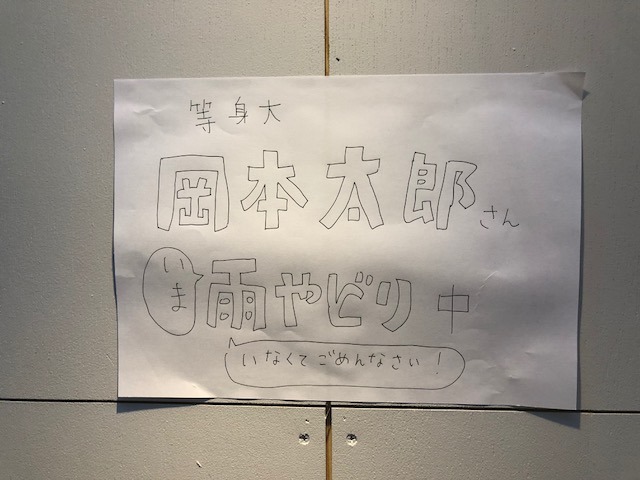 等身大
岡本太郎さん
いま
雨やどり中
いなくてごめんなさい!